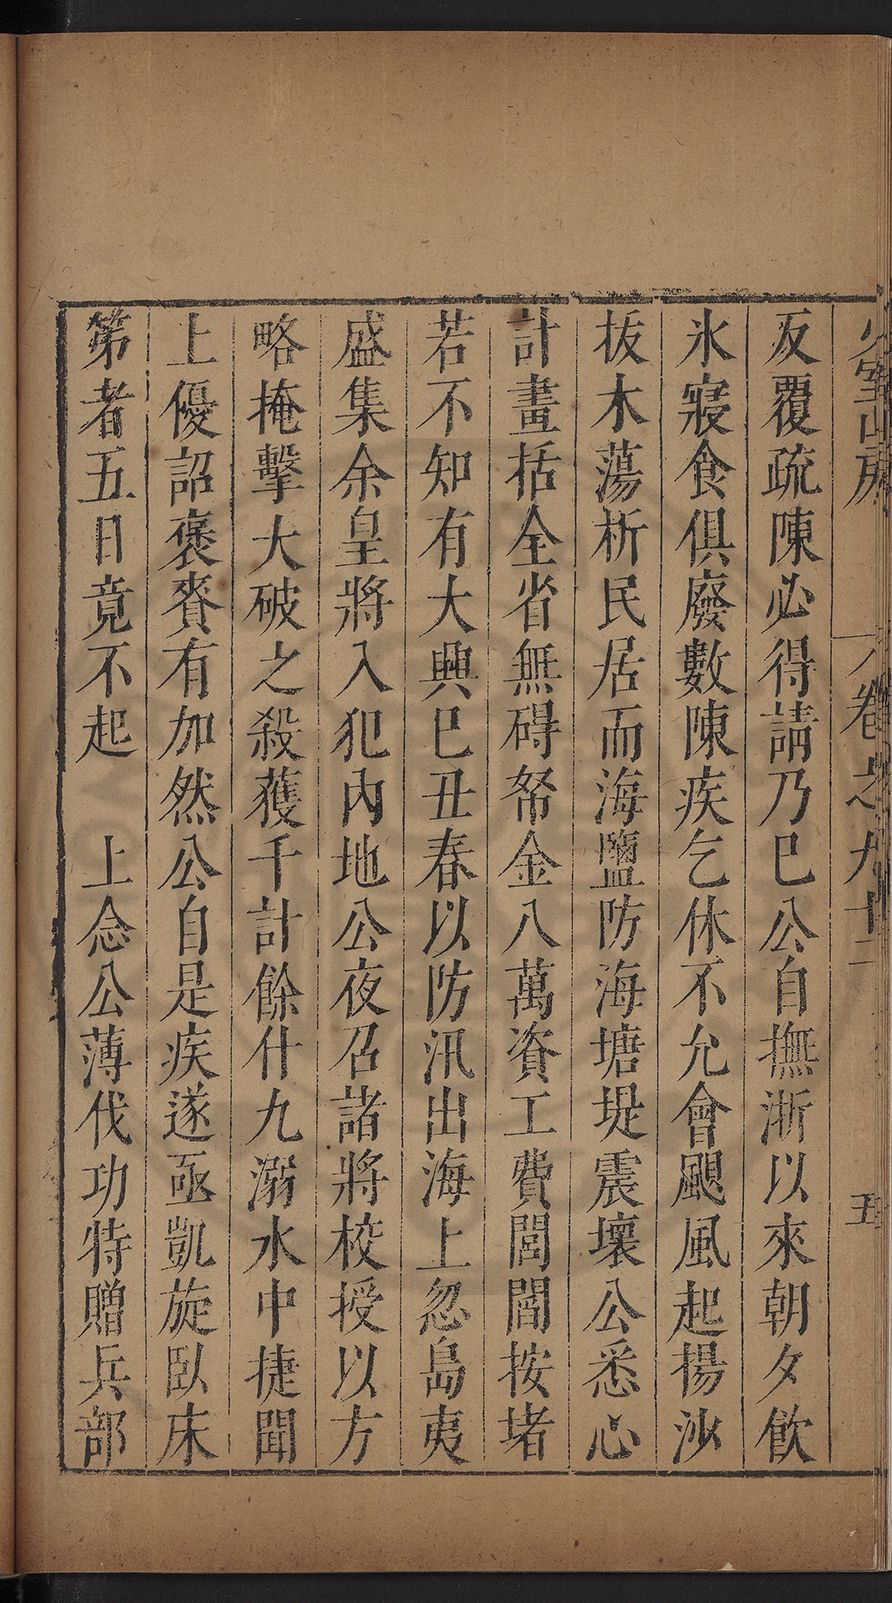 少室山房　卷之九十二　五
反覆疏陳必得請乃巳公自撫浙以來朝夕飲
氷寢食俱廢數陳疾乞休不允會颶風起揚沙
拔木蕩析民居而海鹽防海塘堤震壞公悉心
計畫括全省無碍帑金八萬資工費閭閻按堵
若不知有大興巳丑春以防汛出海上忽島夷
盛集余皇將入犯內地公夜召諸將校授以方
略掩擊大破之殺獲千計餘什九溺水中捷聞
上優詔褒賚有加然公自是疾遂亟凱旋臥床
第者五日竟不起　上念公薄伐功特贈兵部